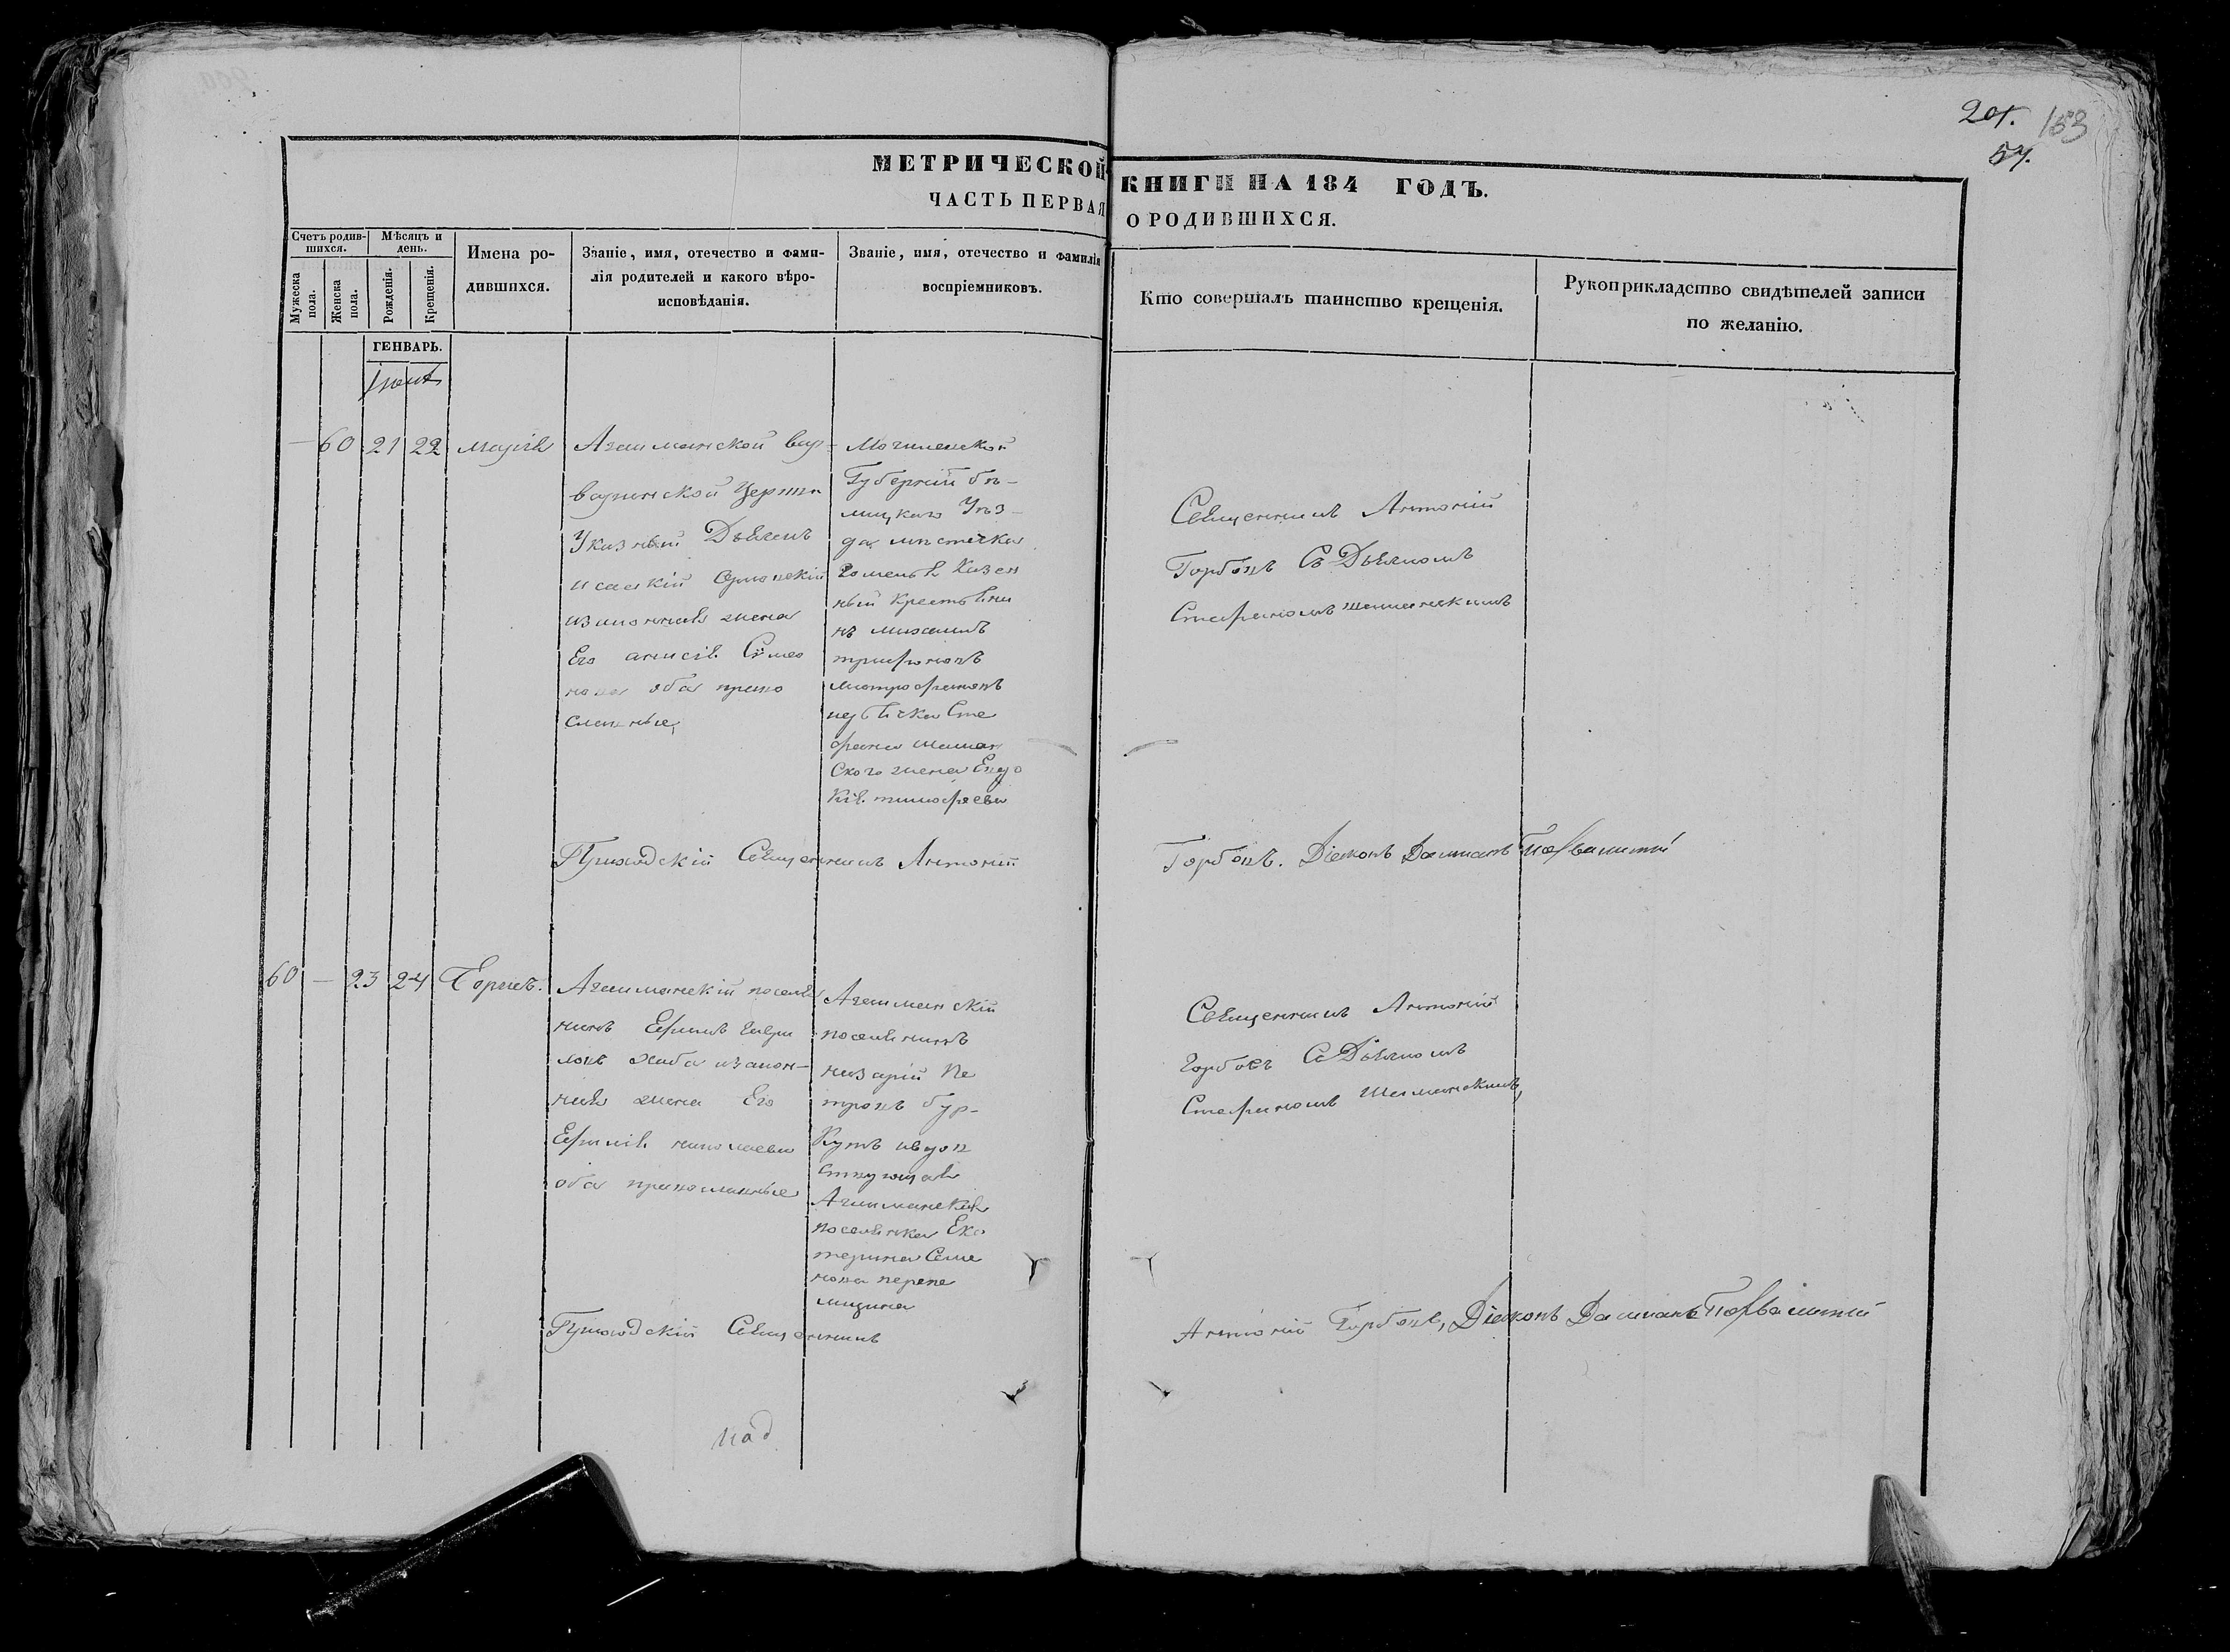 201. 153
57.
МЕТРИЧЕСКОЙ КНИГИ НА 184 ГОДЪ.
ЧАСТЬ ПЕРВАЯ О РОДИВШИХСЯ.
Счетъ родившихся.
Мужеска пола.
Женска пола.
Мѣсяцъ и день.
Рожденія.
Крещенія.
Имена родившихся.
Званіе, имя, отечество и фамилія родителей и какого вѣроисповѣданія.
Званіе, имя, отечество и фамилія воспріемниковъ.
Кто совершалъ таинство крещенія.
Рукоприкладство свидѣтелей записи по желанію.
ГЕНВАРЬ.
— 60 21 22 Марія
Агайманской вар-
варинской Церкви
Указный Дьячекъ
законная жена
Его Симео
нова оба право
славные,
Могилевской
Губерніи бѣ-
лицкаго Уѣз-
да мѣстечка
Гомеля Казен
ный крестьяни
нъ михаилъ
трифоновъ
митрофановъ
дьячка Сте
фана шиман
ского жена Евдо
кія тимофеева
Священникъ Антоній
Горбовъ Съ Дьячкомъ
Стефаномъ шиманскимъ
Приходскій Священникъ Антоній Горбовъ. Діаконъ Даміанъ
60 — 23 24 Борисъ.
Агайманскій поселя
нинъ Ефимъ
закон-
ная жена Его
Ефимія николаева
оба православные
Агайманскій
поселянинъ
назарій Пе
тровъ бур-
кутъ и вдов
ствующая
Агайманская
поселянка Ека
терина Семе
нова пере
Священникъ Антоній
Горбовъ Съ Дьячкомъ
Стефаномъ Шиманскимъ,
Приходскій Священникъ Антоній Горбовъ, Діаконъ Даміанъ
над